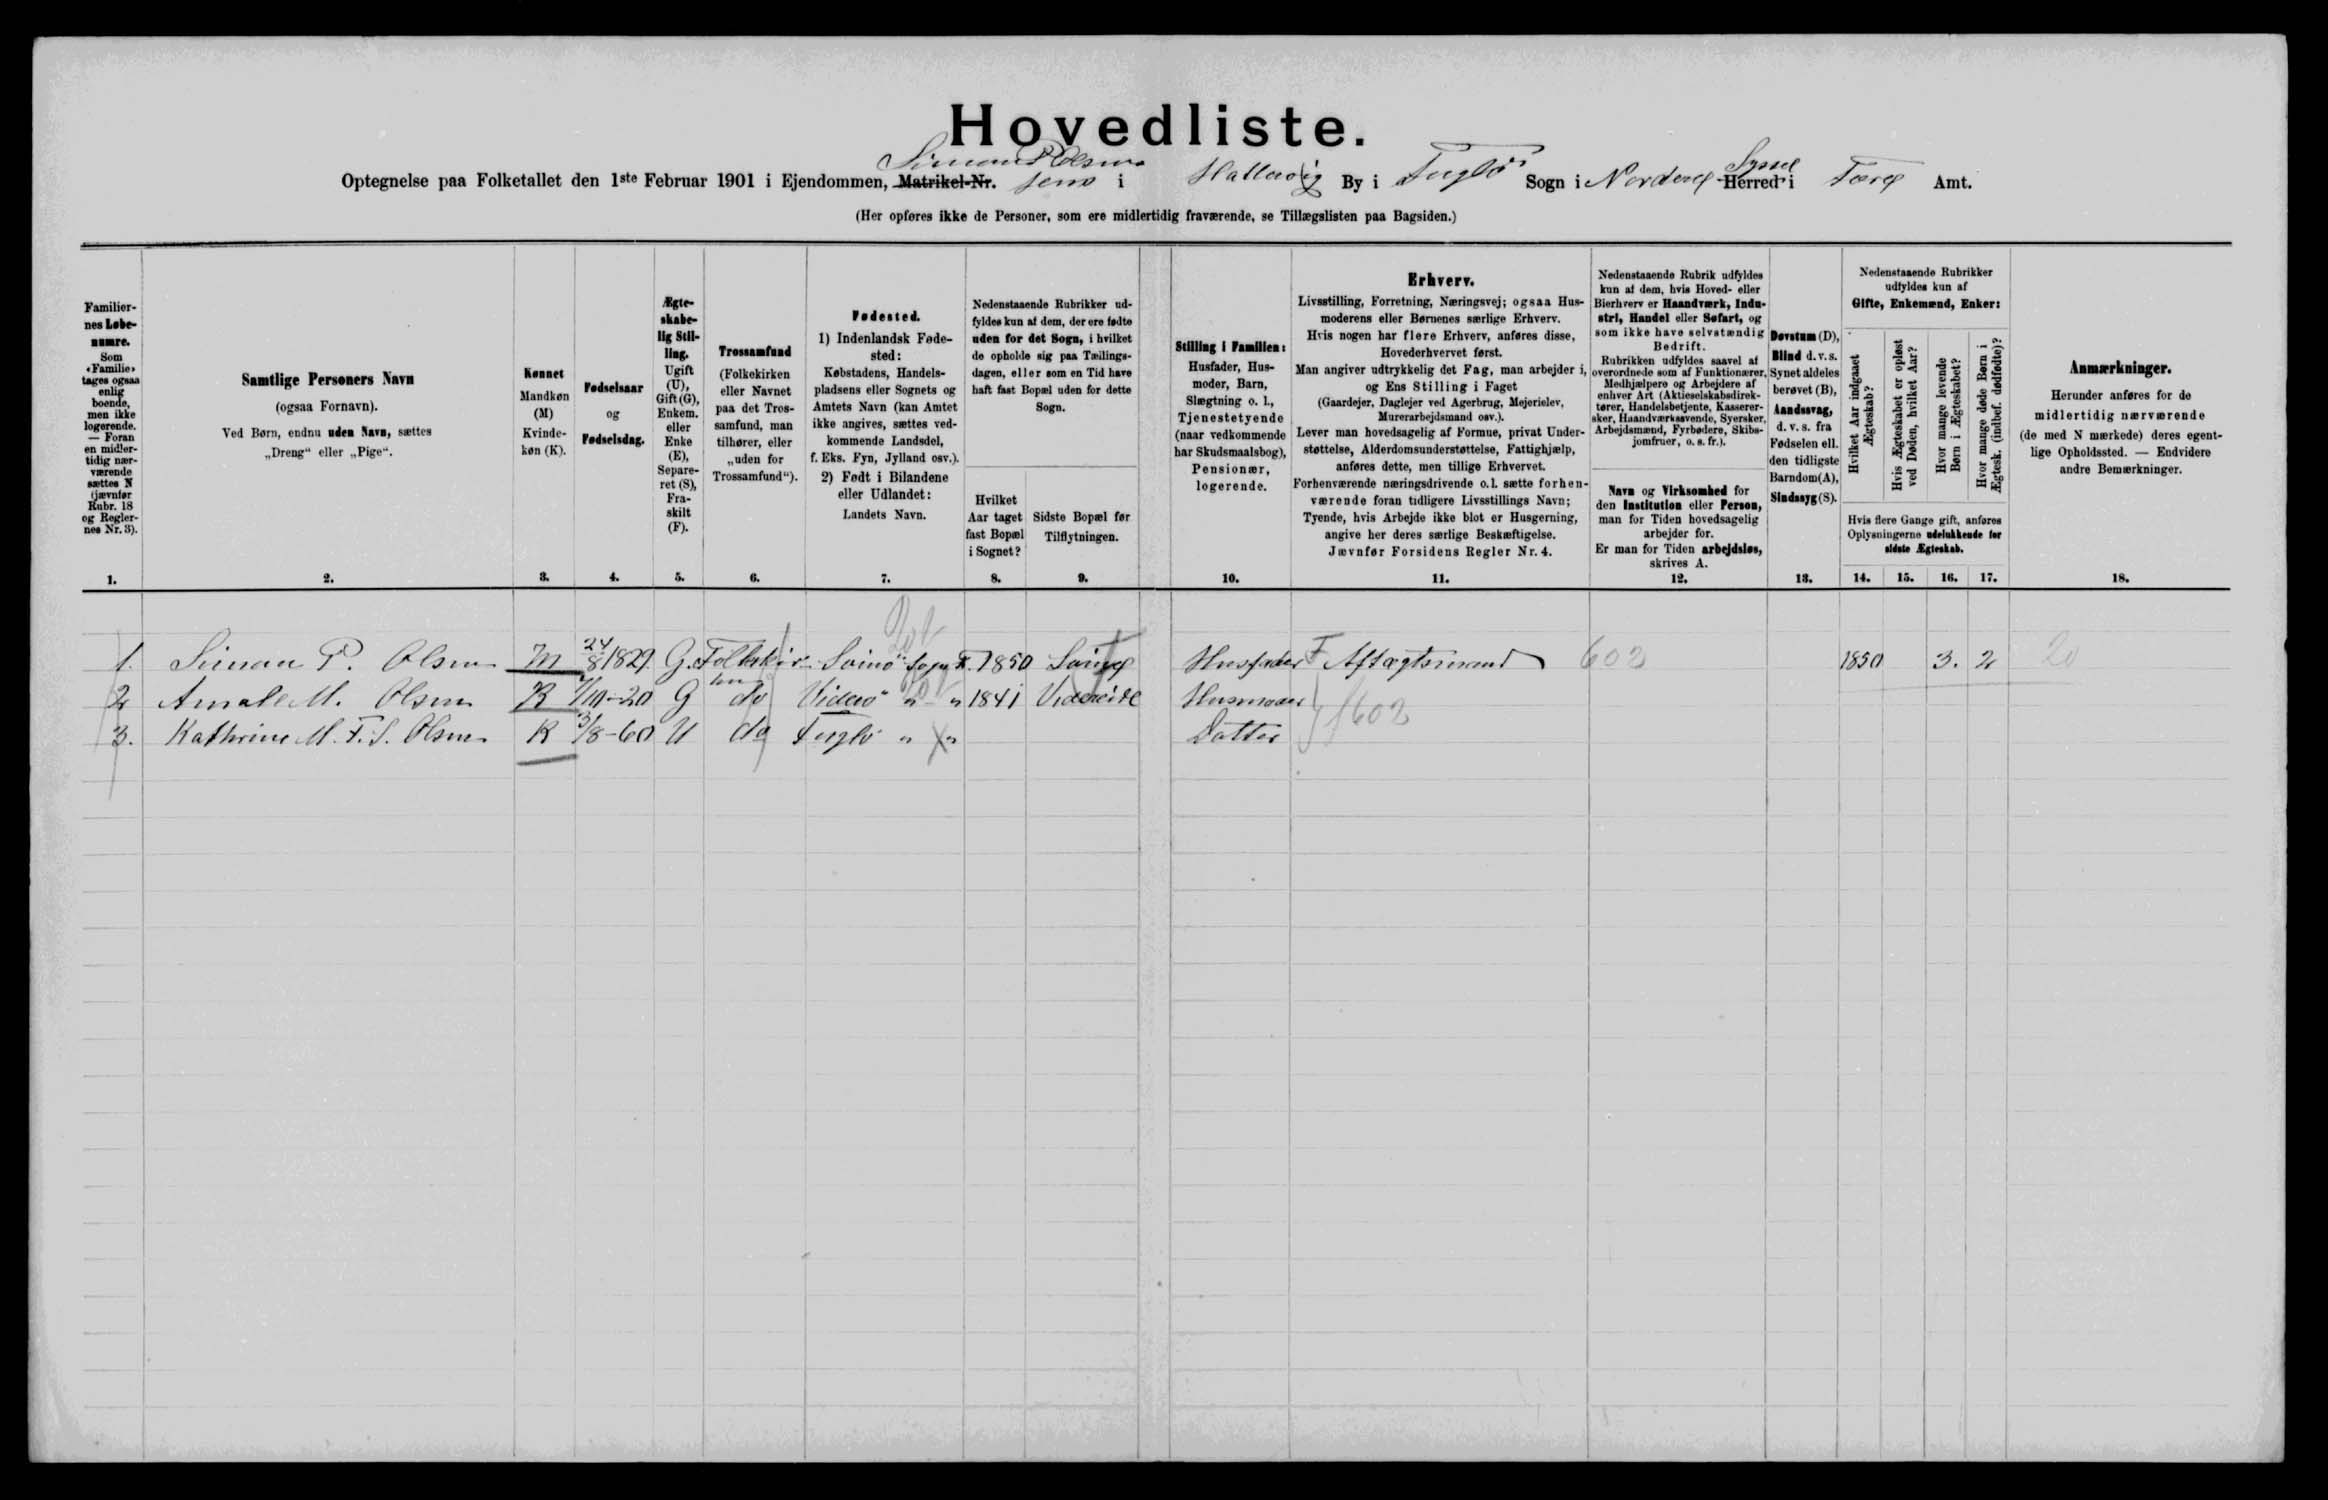 Hovedliste.
Optegnelse paa Folketallet den 1ste Februar 1901 i Ejendommen, Matrikel-Nr. Simon P Olsens i Hattervig By i Fuglö Sogn i Norderø Syssel Herred i Færø Amt.
(Her opføres ikke de Personer, som ere midlertidig fraværende, se Tillægslisten paa Bagsiden.)
Familiernes Løbenumre.
Som «Familie» tages ogsaa enlig boende, men ikke logerende. — Foran en midlertidig nærværende sættes N (jævnfør Rubr. 18 og Reglernes Nr. 3).
1.
Samtlige Personers Navn
(ogsaa Fornavn).
Ved Børn, endnu uden Navn, sættes
„Dreng“ eller „Pige“.
2.
Kønnet
Mandkøn
(M)
Kvinde-
køn (K).
3.
Fødselsaar
og
Fødselsdag.
4.
Ægte-
skabe-
lig Stil-
ling.
Ugift
(U),
Gift (G),
Enkem.
eller
Enke
(E),
Separe-
ret (S),
Fra-
skilt
(F).
5.
Trossamfund
(Folkekirken
eller Navnet
paa det Tros-
samfund, man
tilhører, eller
„uden for
Trossamfund“).
6.
Fødested.
1) Indenlandsk Føde-
sted:
Købstadens, Handels-
pladsens eller Sognets og
Amtets Navn (kan Amtet
ikke angives, sættes ved-
kommende Landsdel,
f. Eks. Fyn, Jylland osv.).
2) Født i Bilandene
eller Udlandet:
Landets Navn.
7.
Nedenstaaende Rubrikker ud-
fyldes kun af dem, der ere fødte
uden for det Sogn, i hvilket
de opholde sig paa Tællings-
dagen, eller som en Tid have
haft fast Bopæl uden for dette
Sogn.
Hvilket
Aar taget
fast Bopæl
i Sognet?
8.
Sidste Bopæl før
Tilflytningen.
9.
Stilling i Familien:
Husfader, Hus-
moder, Barn,
Slægtning o. l.,
Tjenestetyende
(naar vedkommende
har Skudsmaalsbog),
Pensionær,
logerende.
10.
Erhverv.
Livsstilling, Forretning, Næringsvej; ogsaa Hus-
moderens eller Børnenes særlige Erhverv.
Hvis nogen har flere Erhverv, anføres disse,
Hovederhvervet først.
Man angiver udtrykkelig det Fag, man arbejder i,
og Ens Stilling i Faget
(Gaardejer, Daglejer ved Agerbrug, Mejerielev,
Murerarbejdsmand osv.).
Lever man hovedsagelig af Formue, privat Under-
støttelse, Alderdomsunderstøttelse, Fattighjælp,
anføres dette, men tillige Erhvervet.
Forhenværende næringsdrivende o.l. sætte forhen-
værende foran tidligere Livsstillings Navn;
Tyende, hvis Arbejde ikke blot er Husgerning,
angive her deres særlige Beskæftigelse.
Jævnfør Forsidens Regler Nr. 4.
11.
Nedenstaaende Rubrik udfyldes
kun af dem, hvis Hoved- eller
Bierhverv er Haandværk, Indu-
stri, Handel eller Søfart, og
som ikke have selvstændig
Bedrift.
Rubrikken udfyldes saavel af
overordnede som af Funktionærer,
Medhjælpere og Arbejdere af
enhver Art (Aktieselskabsdirek-
tører, Handelsbetjente, Kasserer-
sker, Haandværkssvende, Syersker,
Arbejdsmænd, Fyrbødere, Skibs-
jomfruer, o. s. fr.).
Navn og Virksomhed for
den Institution eller Person,
man for Tiden hovedsagelig
arbejder for.
Er man for Tiden arbejdsløs,
skrives A.
12.
Døvstum (D),
Blind d. v. s.
Synet aldeles
berøvet (B),
Aandssvag,
d. v. s. fra
Fødselen ell.
den tidligste
Barndom (A),
Sindssyg (S).
13.
Nedenstaaende Rubrikker
udfyldes kun af
Gifte, Enkemænd, Enker:
Hvilket Aar indgaaet
Ægteskab?
Hvis Ægteskabet er opløst
ved Døden, hvilket Aar?
Hvor mange levende
Børn i Ægteskabet?
Hvor mange døde Børn i
Ægtesk. (indbef. dødfødte)?
Hvis flere Gange gift, anføres
Oplysningerne udelukkende for
sidste Ægteskab.
14. 15. 16. 17.
Anmærkninger.
Herunder anføres for de
midlertidig nærværende
(de med N mærkede) deres egent-
lige Opholdssted. — Endvidere
andre Bemærkninger.
18.
1. Simon P. Olsen M 24/8 1829 G. Folkekirken Svinö Sogn F. 1850 Svinø Husfader F Aftægtsmand 602 1850 3. 2 20
2 Amale M. Olsen K 7/10-20 G do Viderö " " 1841 Videreide Husmoder
3. Kathrine M. F. S. Olsen K 3/8-60 U do Fuglö " " Datter f 602